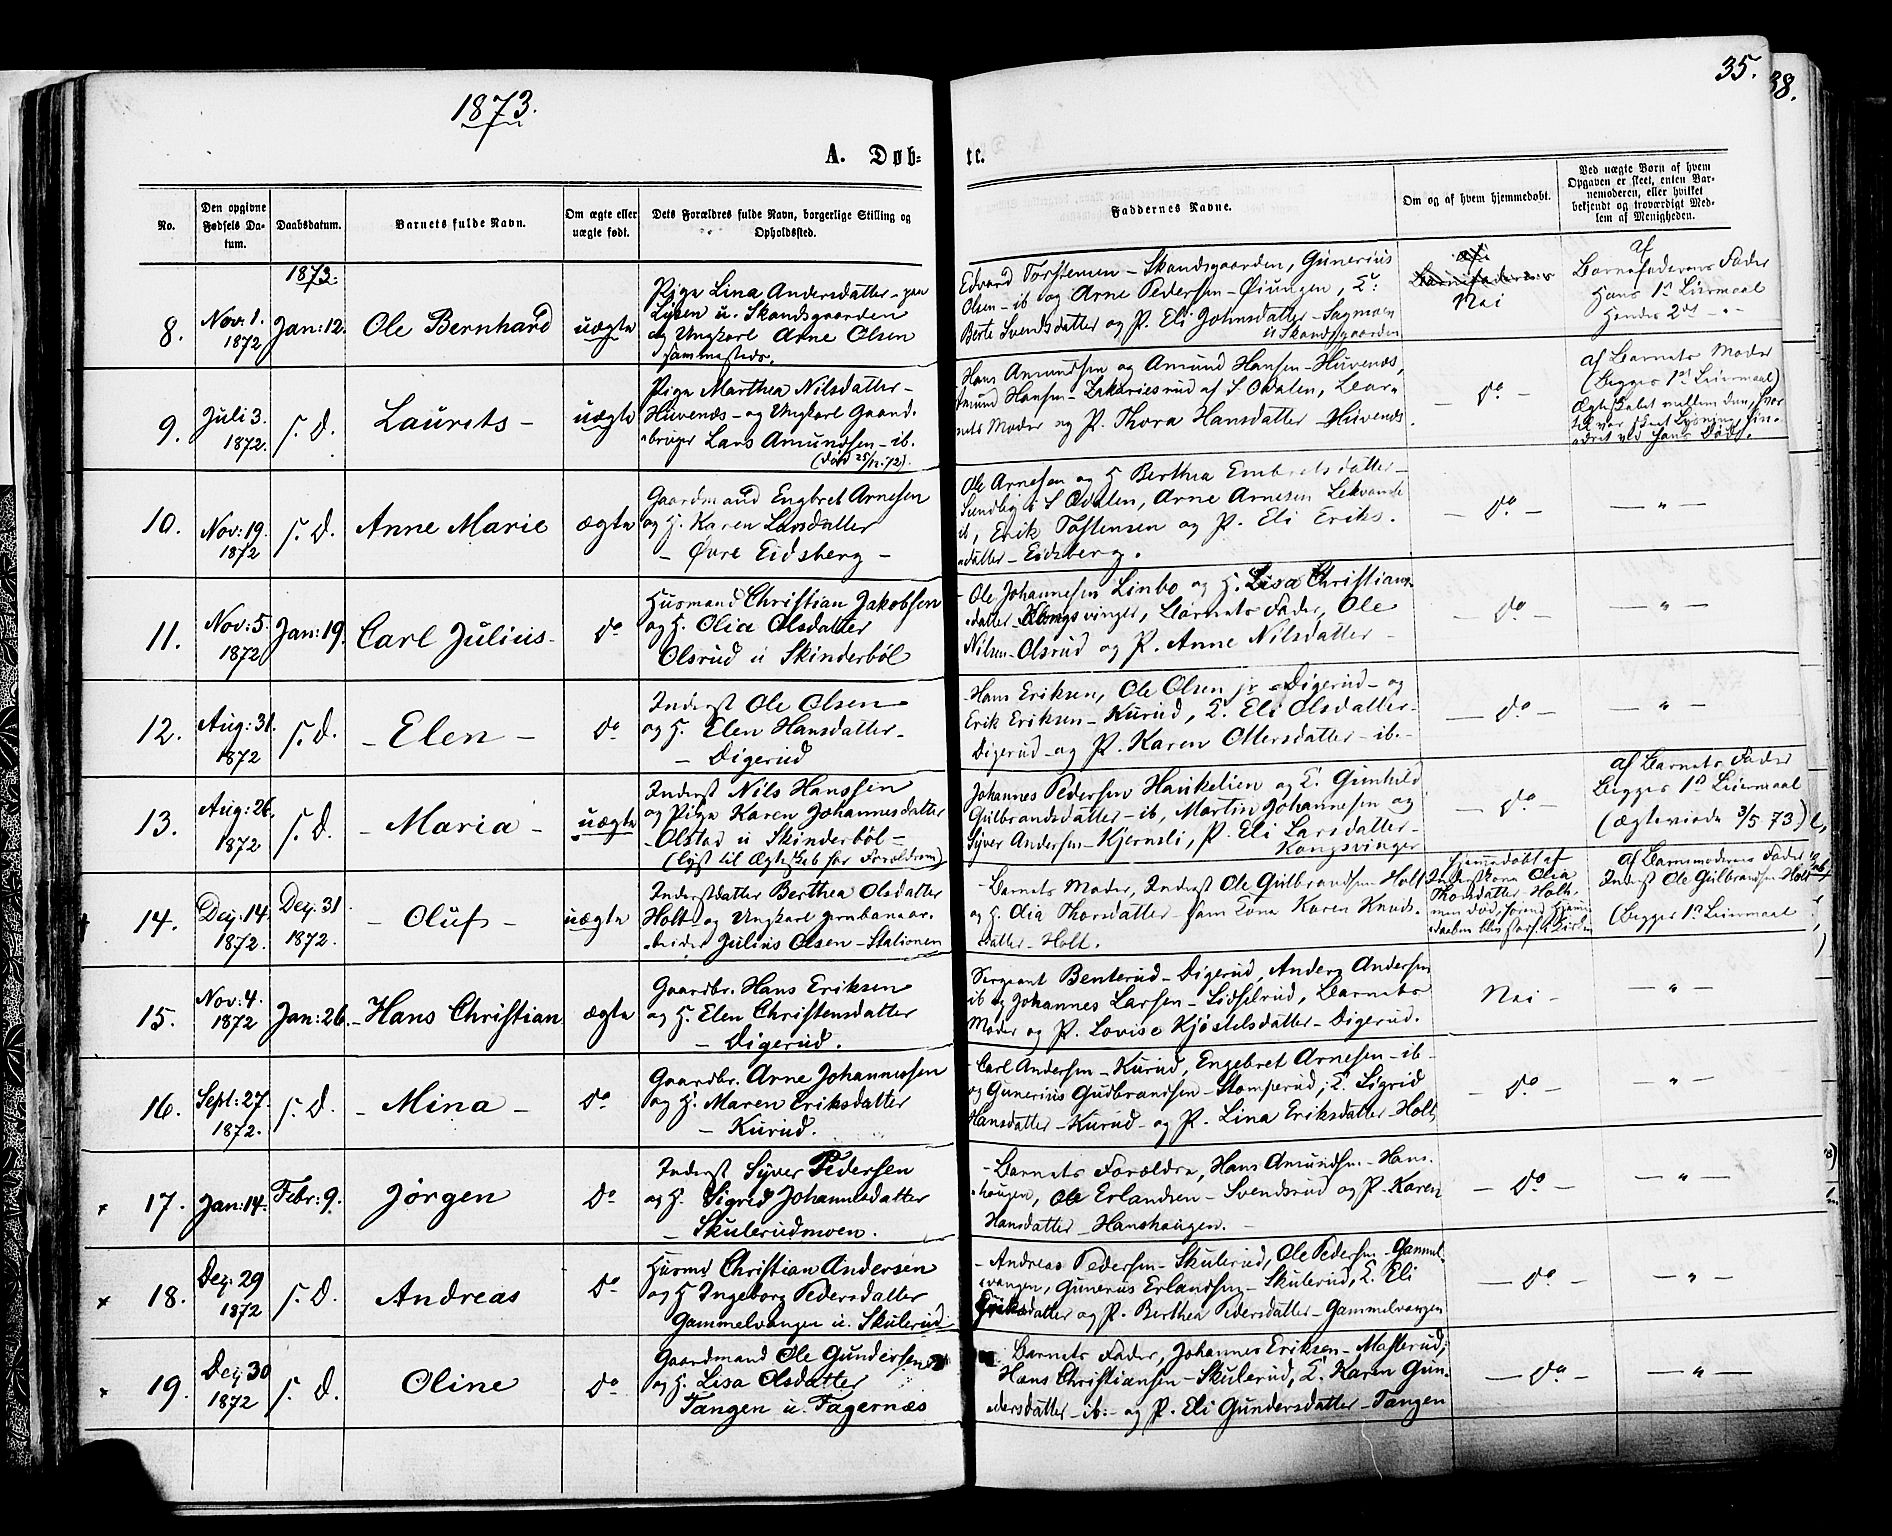 1873.
35.
38.
A. Døb-
te.
No.
Den opgivne Fødsels Da-tum.
Daabsdatum.
Barnets fulde Navn.
Om ægte eller uægte født.
Dets Forældres fulde Navn, borgerlige Stilling og Opholdssted.
Faddernes Navne.
Om og af hvem hjemmedøbt.
Ved uægte Børn af hvem Opgaven er skeet, enten Bar-nemoderen, eller hvilket bekjendt og troværdigt Med-lem af Menigheden.
1873.
8.
Nov: 1.
1872
Jan: 12.
Ole Bernhard
uægte
Pige Lina Andersdatter - paa
Lysen u. Skandsgaarden
og Ungkarl Arne Olsen
sammesteds.
Edvard Torstensen - Skandsgaarden, Gunerius
Olsen - ib og Arne Pedersen - Øiungen, E:
Berte Svendsdatter og P. Eli Johnsdatter - Sagmoen
u Skandsgaarden
Nei
af
Barnefaderens Fader
Hans 1ste Leiermaal
Hendes 2det - " -
9.
Juli 3.
1872.
s. d.
Laurits -
uægte
Pige Marthea Nilsdatter -
Huvenæs - og Ungkarl Gaard-
bruger Lars Amundsen - ib.
(død 25/12.72).
Hans Amundsen og Amund Hansen - Huvenæs,
Amund Hansen - Zakariesrud af S. Odalen, Bar-
nets Moder og P. Thora Hansdatter - Huvenæs.
- do -
af Barnets Moder
(Begges 1ste Leiermaal)
Ægteskabet mellem dem, hvor-
til var skeet Lysning, hin-
dret ved hans Død.
10.
Nov: 19.
1872
s. d.
Anne Marie
ægte
Gaardmand Engbret Arnesen
og H. Karen Larsdatter
- Øvre Eidsberg -
Ole Arnesen og H Berthea Embretsdatter -
Sundby i S Odalen, Arne Arnesen Lekvande
ib, Erik Tostensen og P. Eli Eriks-
datter - Eidsberg.
- do -
- " -
11.
Nov: 5
1872
Jan: 19.
Carl Julius -
do
Husmand Christian Jakobsen
og H. Olia Olsdatter
Olsrud u Skinderböl
- Ole Johannesen Linbo og H. Lisa Christians-
datter - Kongsvinger, Barnets Fader, Ole
Nilsen - Olsrud og P. Anne Nilsdatter -
- do -
- " -
12.
Aug: 31.
1872
s. d.
- Elen -
do
Inderst Ole Olsen
og H. Elen Hansdatter -
- Digerud
- Hans Eriksen, Ole Olsen jr - Digerud - og
Erik Eriksen - Kurud, E. Eli Olsdatter -
Digerud - og P. Karen Ottersdatter - ib. -
- do -
- " -
13.
Aug: 26.
1872
s. d.
- Maria -
uægte
Inderst Nils Hanssen
og Pige Karen Johannesdatter
Olstad u Skinderböl -
(lyst til Ægteskab for Forældrene)
Johannes Pedersen Haukelien og E. Gunhild
Gulbrandsdatter - ib, Martin Johannesen og
Syver Andersen - Kjernsli, P. Eli Larsdatter -
Kongsvinger
- do -
af Barnets Fader
Begges 1ste Leiermaal
(Ægteviede 3/5 73)
14.
Dez. 14.
1872.
Dez. 31
1872.
- Oluf -
uægte
Inderstdatter Berthea Olsdatter
Holt - og Ungkarl Jernbanear-
beider Julius Olsen - Stationen
- Barnets Moder, Inderst Ole Gulbrandsen Holt
og H. Olia Thorsdatter - sam Kona Karen Knuds-
datter - Holt.
Hjemmedøbt af
Inderstkone Olia
Thorsdatter Holt -
men død, førend Hjemme-
daaben blev stadf. i Kirken
af Barnemoderens Fader
Inderst Ole Gulbrandsen Holt
(Begges 1ste Leiermaal
15.
Nov: 4.
1872
Jan: 26.
- Hans Christian
ægte
Gaardbr. Hans Eriksen
og H. Elen Christensdatter
- Digerud.
Sergeant Benterud - Digerud, Anders Andersen
ib og Johannes Larsen - Lidselrud, Barnets
Moder og P. Lovise Kjöstelsdatter - Digerud.
Nei -
- " -
16.
Sept: 27.
1872.
s. d.
- Mina -
do
Gaardbr. Arne Johannessen
og H. Maren Eriksdatter
- Kurud.
- Carl Andersen - Kurud, Engebret Arnesen - ib -
og Gunerius Gudbrandsen - Stomperud, E. Sigrid
Hansdatter - Kurud - og P. Lina Eriksdatter - Holt,
- do -
- " -
17.
Jan: 14.
Febr: 9.
Jörgen
do
Inderst Syver Pedersen
og H. Sigrid Johannesdatter
- Skulerudmoen.
- Barnets Forældre, Hans Amundsen - Hans-
haugen, Ole Erlandsen - Svendsrud og P. Karen
Hansdatter - Hanshaugen. -
- do -
- " -
18.
Dez: 29
1872
s. d.
Andreas
do
Husmd Christian Andersen
og H Ingeborg Pedersdatter
Gammelvangen u. Skulerud
- Andreas Pedersen - Skulerud, Ole Pedersen - Gammel-
vangen, Gunerius Erlandsen - Skulerud, E. Eli
Eriksdatter og P. Berthea Pedersdatter - Gammelvangen
- do -
- " -
19.
Dez 30
1872
s. d.
Oline
do
Gaardmand Ole Gundersen
og H. Lisa Olsdatter
Tangen u. Fagernæs
Barnets Fader, Johannes Eriksen - Masterud,
Hans Christiansen - Skulerud, E. Karen Gun-
dersdatter - ib: - og P. Eli Gundersdatter - Tangen
- do -
- " -